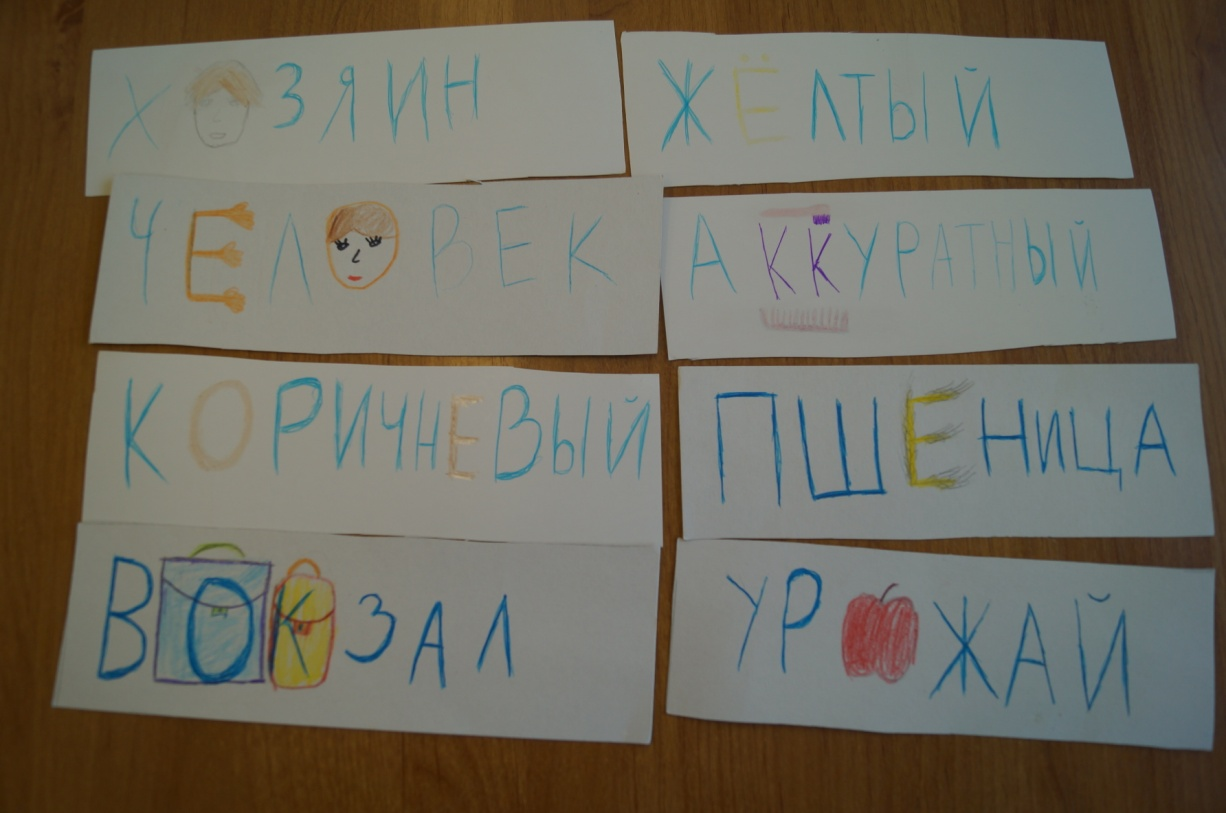 ХОЗЯИН
ЖЁЛТЫЙ
ЧЕЛОВЕК
АККУРАТНЫЙ
КОРИЧНЕВЫЙ
ПШЕНИЦА
ВОКЗАЛ
УРОЖАЙ